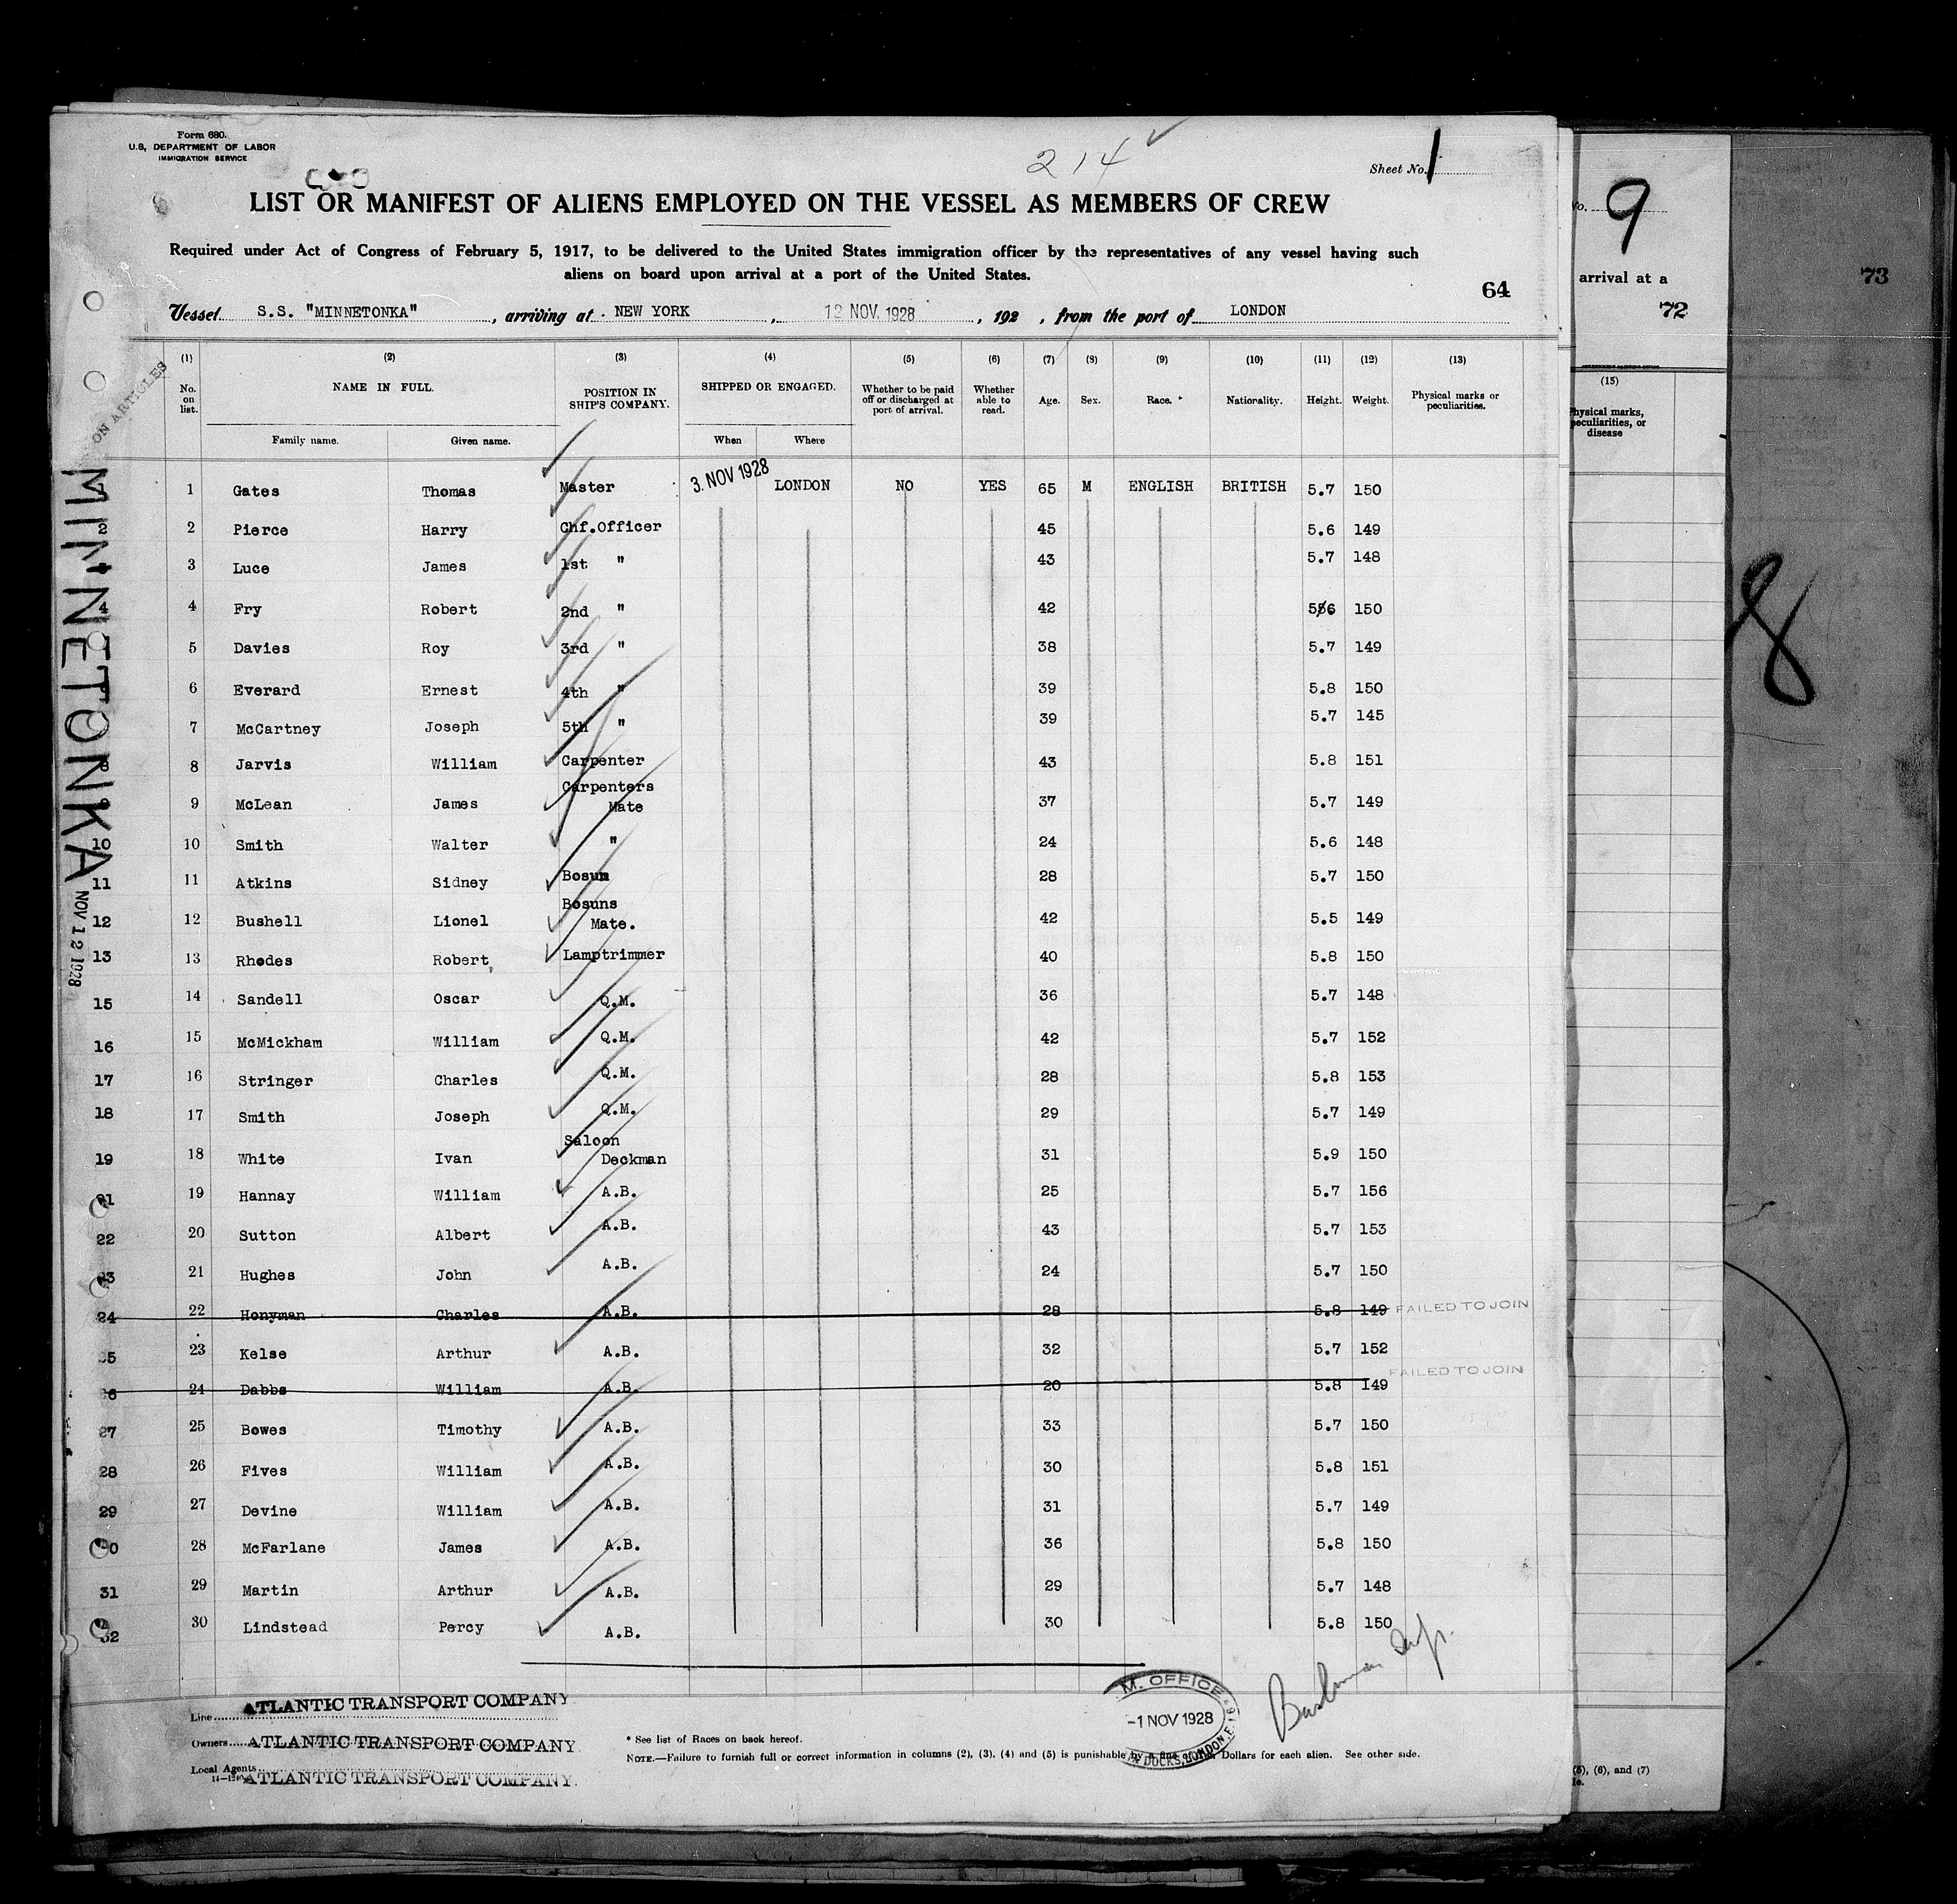 Form 680.
U.S. DEPARTMENT OF LABOR
IMMIGRATION SERVICE
214
Sheet No. 1
LIST OR MANIFEST OF ALIENS EMPLOYED ON THE VESSEL AS MEMBERS OF CREW
Required under Act of Congress of February 5, 1917, to be delivered to the United States immigration officer by the representatives of any vessel having such
aliens on board upon arrival at a port of the United States.
64
Vessel S.S. "MINNETONKA", arriving at NEW YORK, 12 NOV. 1928, 192 , from the port of LONDON
(1) (2) (3) (4) (5) (6) (7) (8) (9) (10) (11) (12) (13)
No. on list. NAME IN FULL. POSITION IN SHIP'S COMPANY. SHIPPED OR ENGAGED. Whether to be paid off or discharged at port of arrival. Whether able to read. Age. Sex. Race. * Nationality. Height. Weight. Physical marks or peculiarities.
Family name. Given name. When Where
ON ARTICLES
MINNETONKA
NOV 12 1928
1 Gates Thomas Master 3. NOV 1928 LONDON NO YES 65 M ENGLISH BRITISH 5.7 150
2 2 Pierce Harry Chf.Officer 45 5.6 149
3 Luce James 1st " 43 5.7 148
4 4 Fry Robert 2nd " 42 5/6 150
5 Davies Roy 3rd " 38 5.7 149
6 Everard Ernest 4th " 39 5.8 150
7 McCartney Joseph 5th " 39 5.7 145
8 8 Jarvis William Carpenter 43 5.8 151
9 McLean James Carpenters Mate 37 5.7 149
10 10 Smith Walter " 24 5.6 148
11 11 Atkins Sidney Bosun 28 5.7 150
12 12 Bushell Lionel Bosuns Mate. 42 5.5 149
13 13 Rhodes Robert Lamptrimmer 40 5.8 150
15 14 Sandell Oscar Q.M. 36 5.7 148
16 15 McMickham William Q.M. 42 5.7 152
17 16 Stringer Charles Q.M. 28 5.8 153
18 17 Smith Joseph Q.M. 29 5.7 149
19 18 White Ivan Saloon Deckman 31 5.9 150
21 19 Hannay William A.B. 25 5.7 156
22 20 Sutton Albert A.B. 43 5.7 153
23 21 Hughes John A.B. 24 5.7 150
24 22 Honyman Charles A.B. 28 5.8 149 FAILED TO JOIN
25 23 Kelse Arthur A.B. 32 5.7 152
26 24 Dabbs William A.B. 20 5.8 149 FAILED TO JOIN
27 25 Bowes Timothy A.B. 33 5.7 150
28 26 Fives William A.B. 30 5.8 151
29 27 Devine William A.B. 31 5.7 149
30 28 McFarlane James A.B. 36 5.8 150
31 29 Martin Arthur A.B. 29 5.7 148
32 30 Lindstead Percy A.B. 30 5.8 150
Line ATLANTIC TRANSPORT COMPANY
Owners ATLANTIC TRANSPORT COMPANY
Local Agents ATLANTIC TRANSPORT COMPANY.
* See list of Races on back hereof.
NOTE.—Failure to furnish full or correct information in columns (2), (3), (4) and (5) is punishable by a fine Dollars for each alien. See other side.
M. OFFICE
-1 NOV 1928
DOCKS, LONDON, E.16
No. 9
arrival at a
72
(15)
Physical marks, peculiarities, or disease
(5), (6), and (7)
73
8